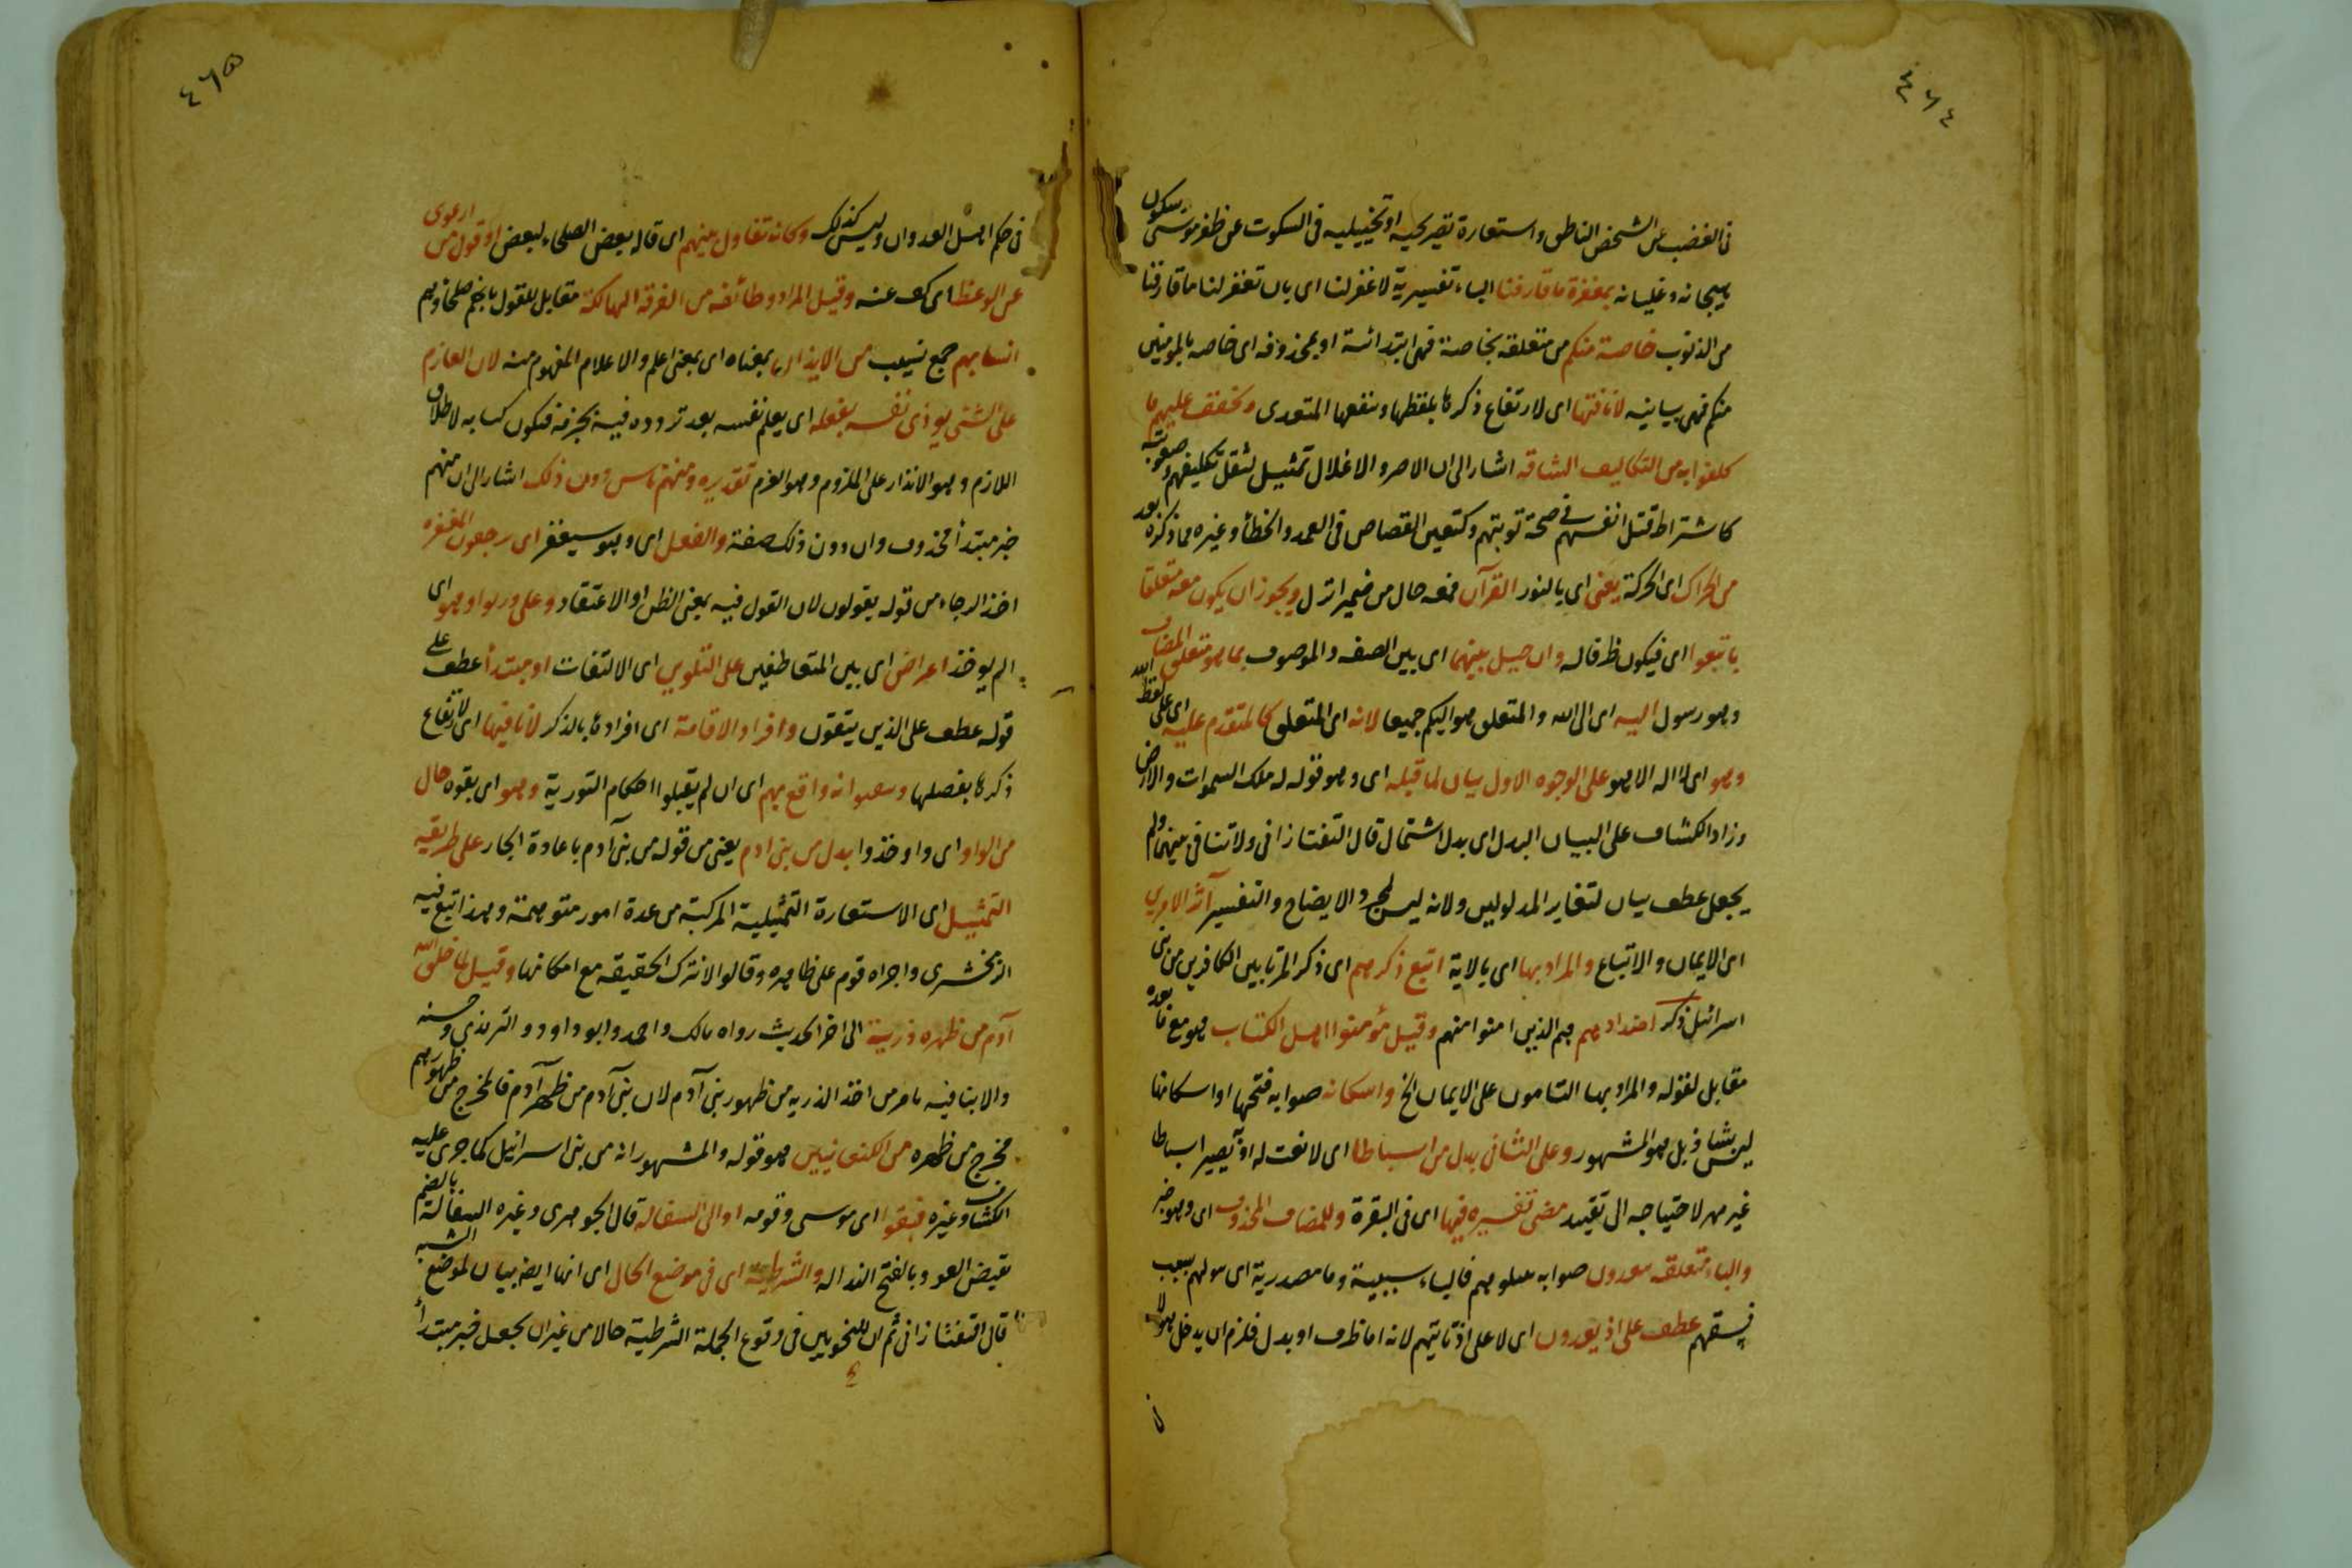 ٤٦٤
فى الغضب عن الشخص الناطق واستعارة تصريحيه او تخييليه فى السكوت عن ظفر موسى بسكون
هيجانه وغليانه بمغفرة ما قارفنا الباء تفسيرية لاغفرلنا اى بان تغفر لنا ما قارفنا
من الذنوب خاصة منكم من متعلقه بخاصة فهى ابتدائية او بمحذوفه اى خاصه بالمومنين
منكم فهى بيانيه لانافتها اى لارتفاع ذكرها بلفظها ونفعها المتعدى وتخفف عليهم ما
كلفوا به من التكاليف الشاقه اشار الى ان الاصر والاغلال تمثيل لثقل تكليفهم وصعوبته
كاشتراط قتل انفسهم فى صحة توبتهم وكتعين القصاص فى العمد والخطأ وغيره مما ذكره بعد
من الحراك اى الحركة يعنى اى بالنور القرآن فمعه حال من ضمير انزل ويجوز ان يكون معه متعلقا
باتبعوا اى فيكون ظرفا له وان حيل بينهما اى بين الصفه والموصوف بما هو متعلق المضاف
وهو رسول اليه اى الى الله والمتعلق هو اليكم جميعا لانه اى المتعلق كالمتقدم عليه اى على لفظ الله
وهو اى لا اله الا هو على الوجوه الاول بيان لما قبله اى وهو قوله له ملك السموات والارض
وزاد الكشاف على البيان البدل اى بدل اشتمال قال التفتازانى ولا تنافى بينهما ولم
يجعل عطف بيان لتغاير المدلولين ولانه ليس لمجرد الايضاح والتفسير آثر الامرين
اى الايمان والاتباع والمراد بها اى بالاية اتبع ذكرهم اى ذكر المرتابين الكافرين من بنى
اسرائيل ذكر اضدادهم هم الذين امنوا منهم وقيل مؤمنوا اهل الكتاب هو مع ما بعده
مقابل لقوله والمراد بها الثابتون على الايمان الخ واسكانه صوابه فتحها او اسكانها
ليس بشاذ بل هو المشهور وعلى الثانى بدل من اسباطا اى لا نعت له او تصير اسباطا
غير مميز لاحتياجه الى تقييد مضى تفسيره فيها اى فى البقرة وللمضاف المحذوف اى وهو خبر
والباء متعلقه يعدون صوابه نبلوهم فالباء سببية وما مصدرية اى نبلوهم بسبب
فسقهم عطف على اذ يعدون اى لا على اذ تاتيهم لانه اما ظرف او بدل فلزم ان يدخل هؤلا
٤٦٥
فى حكم اهل العدوان وليس كذلك وكانه تقاول بينهم اى قاله بعض الصلحاء لبعض او قول من ارعوى
عن الوعظ اى كف عنه وقيل المراد وطائفه من الفرقة الهالكة مقابل للقول بانهم صلحاؤهم
انسابهم جمع نسيب من الايذان بمعناه اى بمعنى اعلم والاعلام المفهوم منه لان العازم
على الشئ يوذن نفسه بفعله اى يعلم نفسه بعد تردده فيه بجزمه فتكون كنايه لاطلاق
اللازم وهو الانذار على الملزوم وهو العزم تقديره ومنهم ناس دون ذلك اشار الى ان منهم
خبر مبتدأ محذوف وان دون ذلك صفة والفعل اى وهو سيغفر اى يرجعون المغفره
اخذ الرجاء من قوله يقولون لان القول فيه بمعنى الظن او الاعتقاد وعلى ورثوا وهو اى
الم يوخذ اعتراض اى بين المتعاطفين على التلوين اى الالتفات او مبتدأ عطف على
قوله عطف على الذين يتقون وافراد الاقامة اى افرادها بالذكر لانافتها اى لارتفاع
ذكرها بفضلها وسعد انه واقع بهم اى ان لم يقبلوا احكام التورية وهو اى بقوه حال
من الواو اى واو خذوا بدل من بنى ادم يعنى من قوله من بنى آدم باعادة الجار على طريقه
التمثيل اى الاستعارة التمثيلية المركبة من عدة امور متوهمة وهذا تبع فيه
الزمخشرى واجراه قوم على ظاهره وقالوا لا نترك الحقيقه مع امكانها وقيل لما خلق الله
آدم من ظهره ذريته الى اخر الحديث رواه مالك واحمد وابو داود والترمذى وحسنه
والا ينافيه ما مر من اخذ الذريه من ظهور بنى آدم لان بنى آدم من ظهر آدم فالمخرج من ظهورهم
مخرج من ظهره من الكنعانيين هو قوله والمشهور انه من بنى اسرائيل كما جرى عليه
الكشاف وغيره فبقوا اى موسى وقومه او الى السفاله قال الجوهرى وغيره السفالة بالضم
نقيض العلو وبالفتح النذاله والشرطية اى فى موضع الحال اى انها ايضا بيان لموضع الشبه
قال التفتازانى ثم ان للنحويين فى وقوع الجملة الشرطية حالا من غير ان يجعل خبر مبتدأ